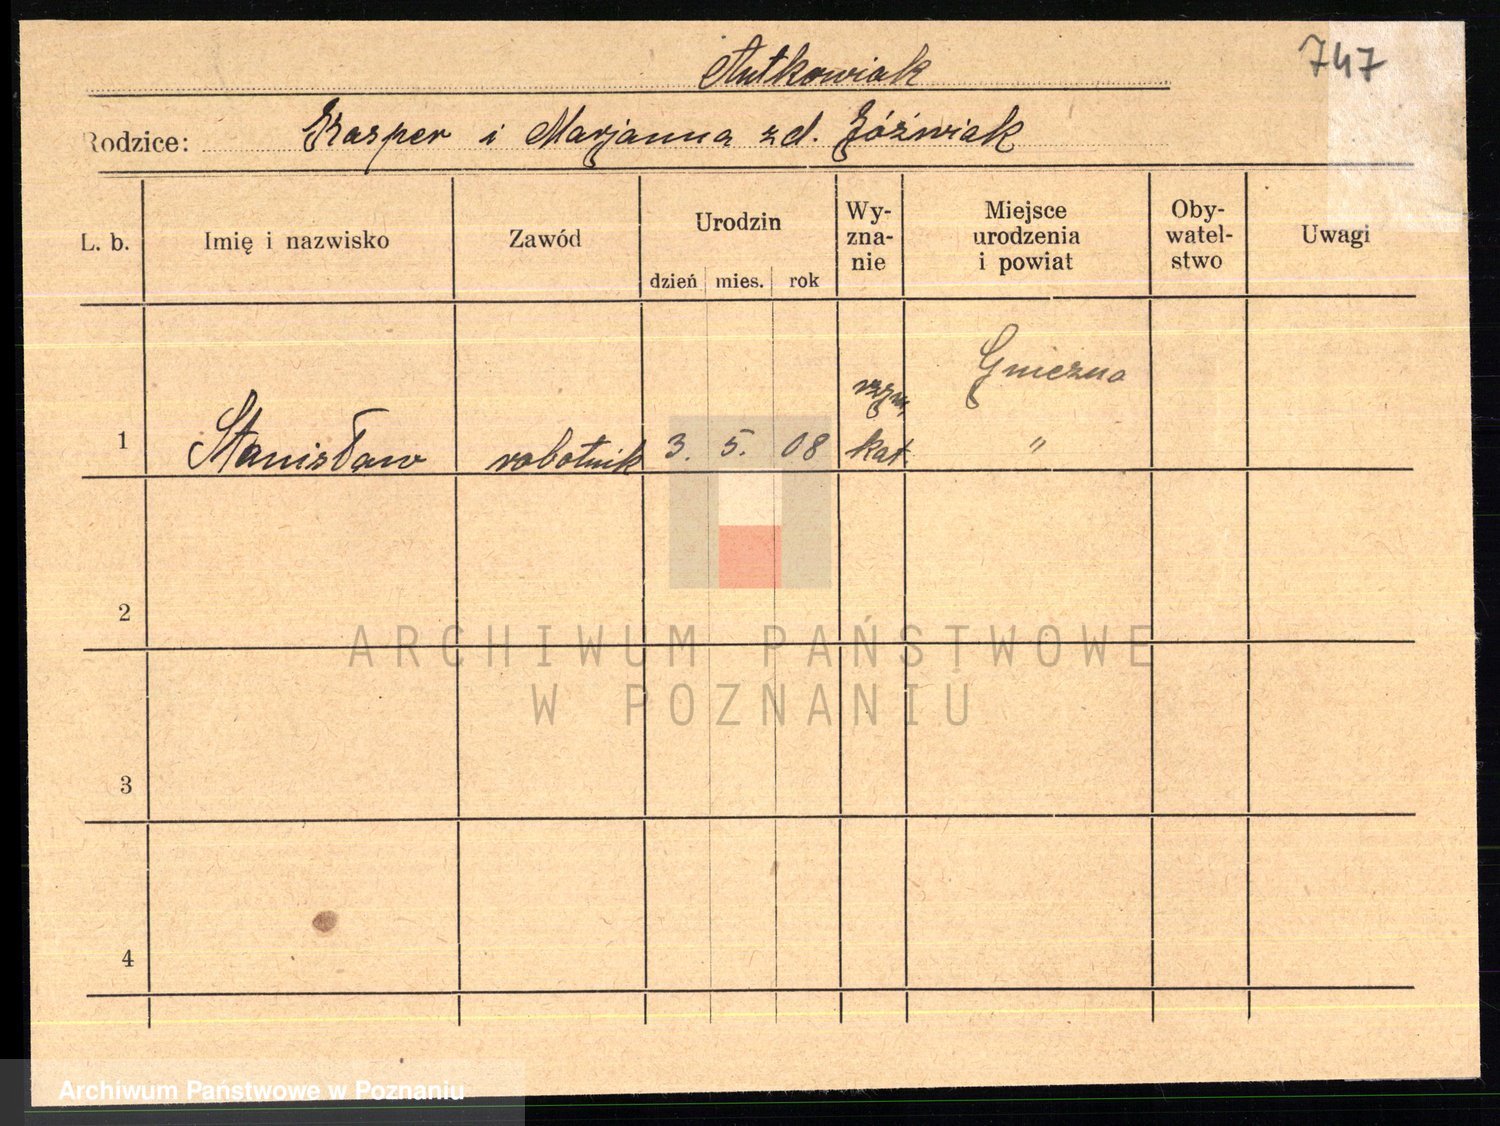 747
Rutkowiak
Rodzice: Kasper i Marjanna z d. Jóźwiak
L. b. Imię i nazwisko Zawód Urodzin dzień mies. rok Wy-zna-nie Miejsce urodzenia i powiat Oby-watel-stwo Uwagi
Gniezno
rzym,
1 Stanisław robotnik 3. 5. 08 kat. "
2
ARCHIWUM PAŃSTWOWE
W POZNANIU
3
4
Archiwum Państwowe w Poznaniu